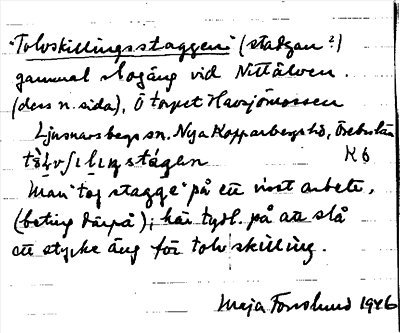 "Tolvskillingsstaggen" (stadgan?)
gammal slogäng vid Nittälven.
(dess n. sida), Ö torpet Havsjömossen
Ljusnarsbergs sn. Nya Kopparbergs hd, Örebro län
K6
Man "tog stagge" på ett visst arbete,
(beting därpå); här tydl. på att slå
ett stycke äng för tolv skilling.
Maja Forsslund 1946